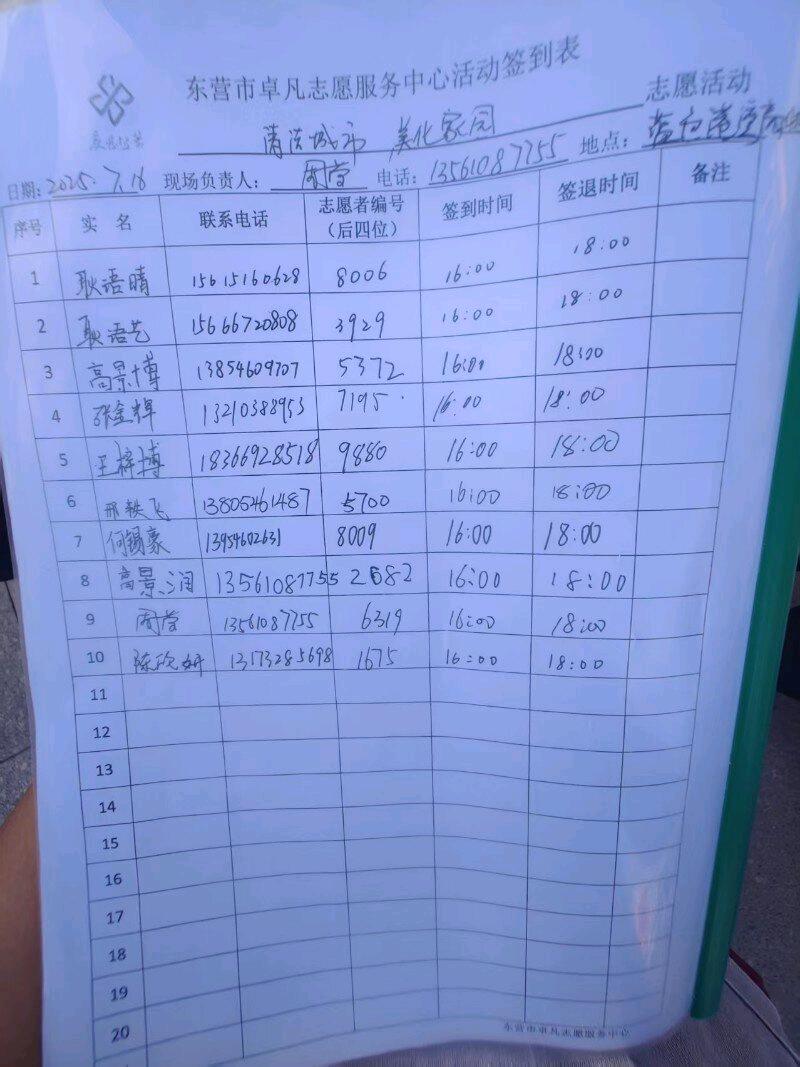 东营市卓凡志愿服务中心活动签到表
清洁城市 美化家园 志愿活动
日期：2025.7.16 现场负责人： 周莹 电话：13561087755 地点：
序号 实 名 联系电话 志愿者编号（后四位） 签到时间 签退时间 备注
1 耿语晴 15615160628 8006 16:00 18:00
2 耿语艺 15666720808 3929 16:00 18:00
3 高景博 13854609707 5372 16:00 18:00
4 张金辉 13210388953 7195 16:00 18:00
5 王梓博 18366928518 9880 16:00 18:00
6 邢轶飞 13805461487 5700 16:00 18:00
7 何锡豪 13954602631 8009 16:00 18:00
8 高景润 13561087755 2682 16:00 18:00
9 周莹 13561087755 6319 16:00 18:00
10 陈欣妍 13173285698 1675 16:00 18:00
11
12
13
14
15
16
17
18
19
20
东营市卓凡志愿服务中心